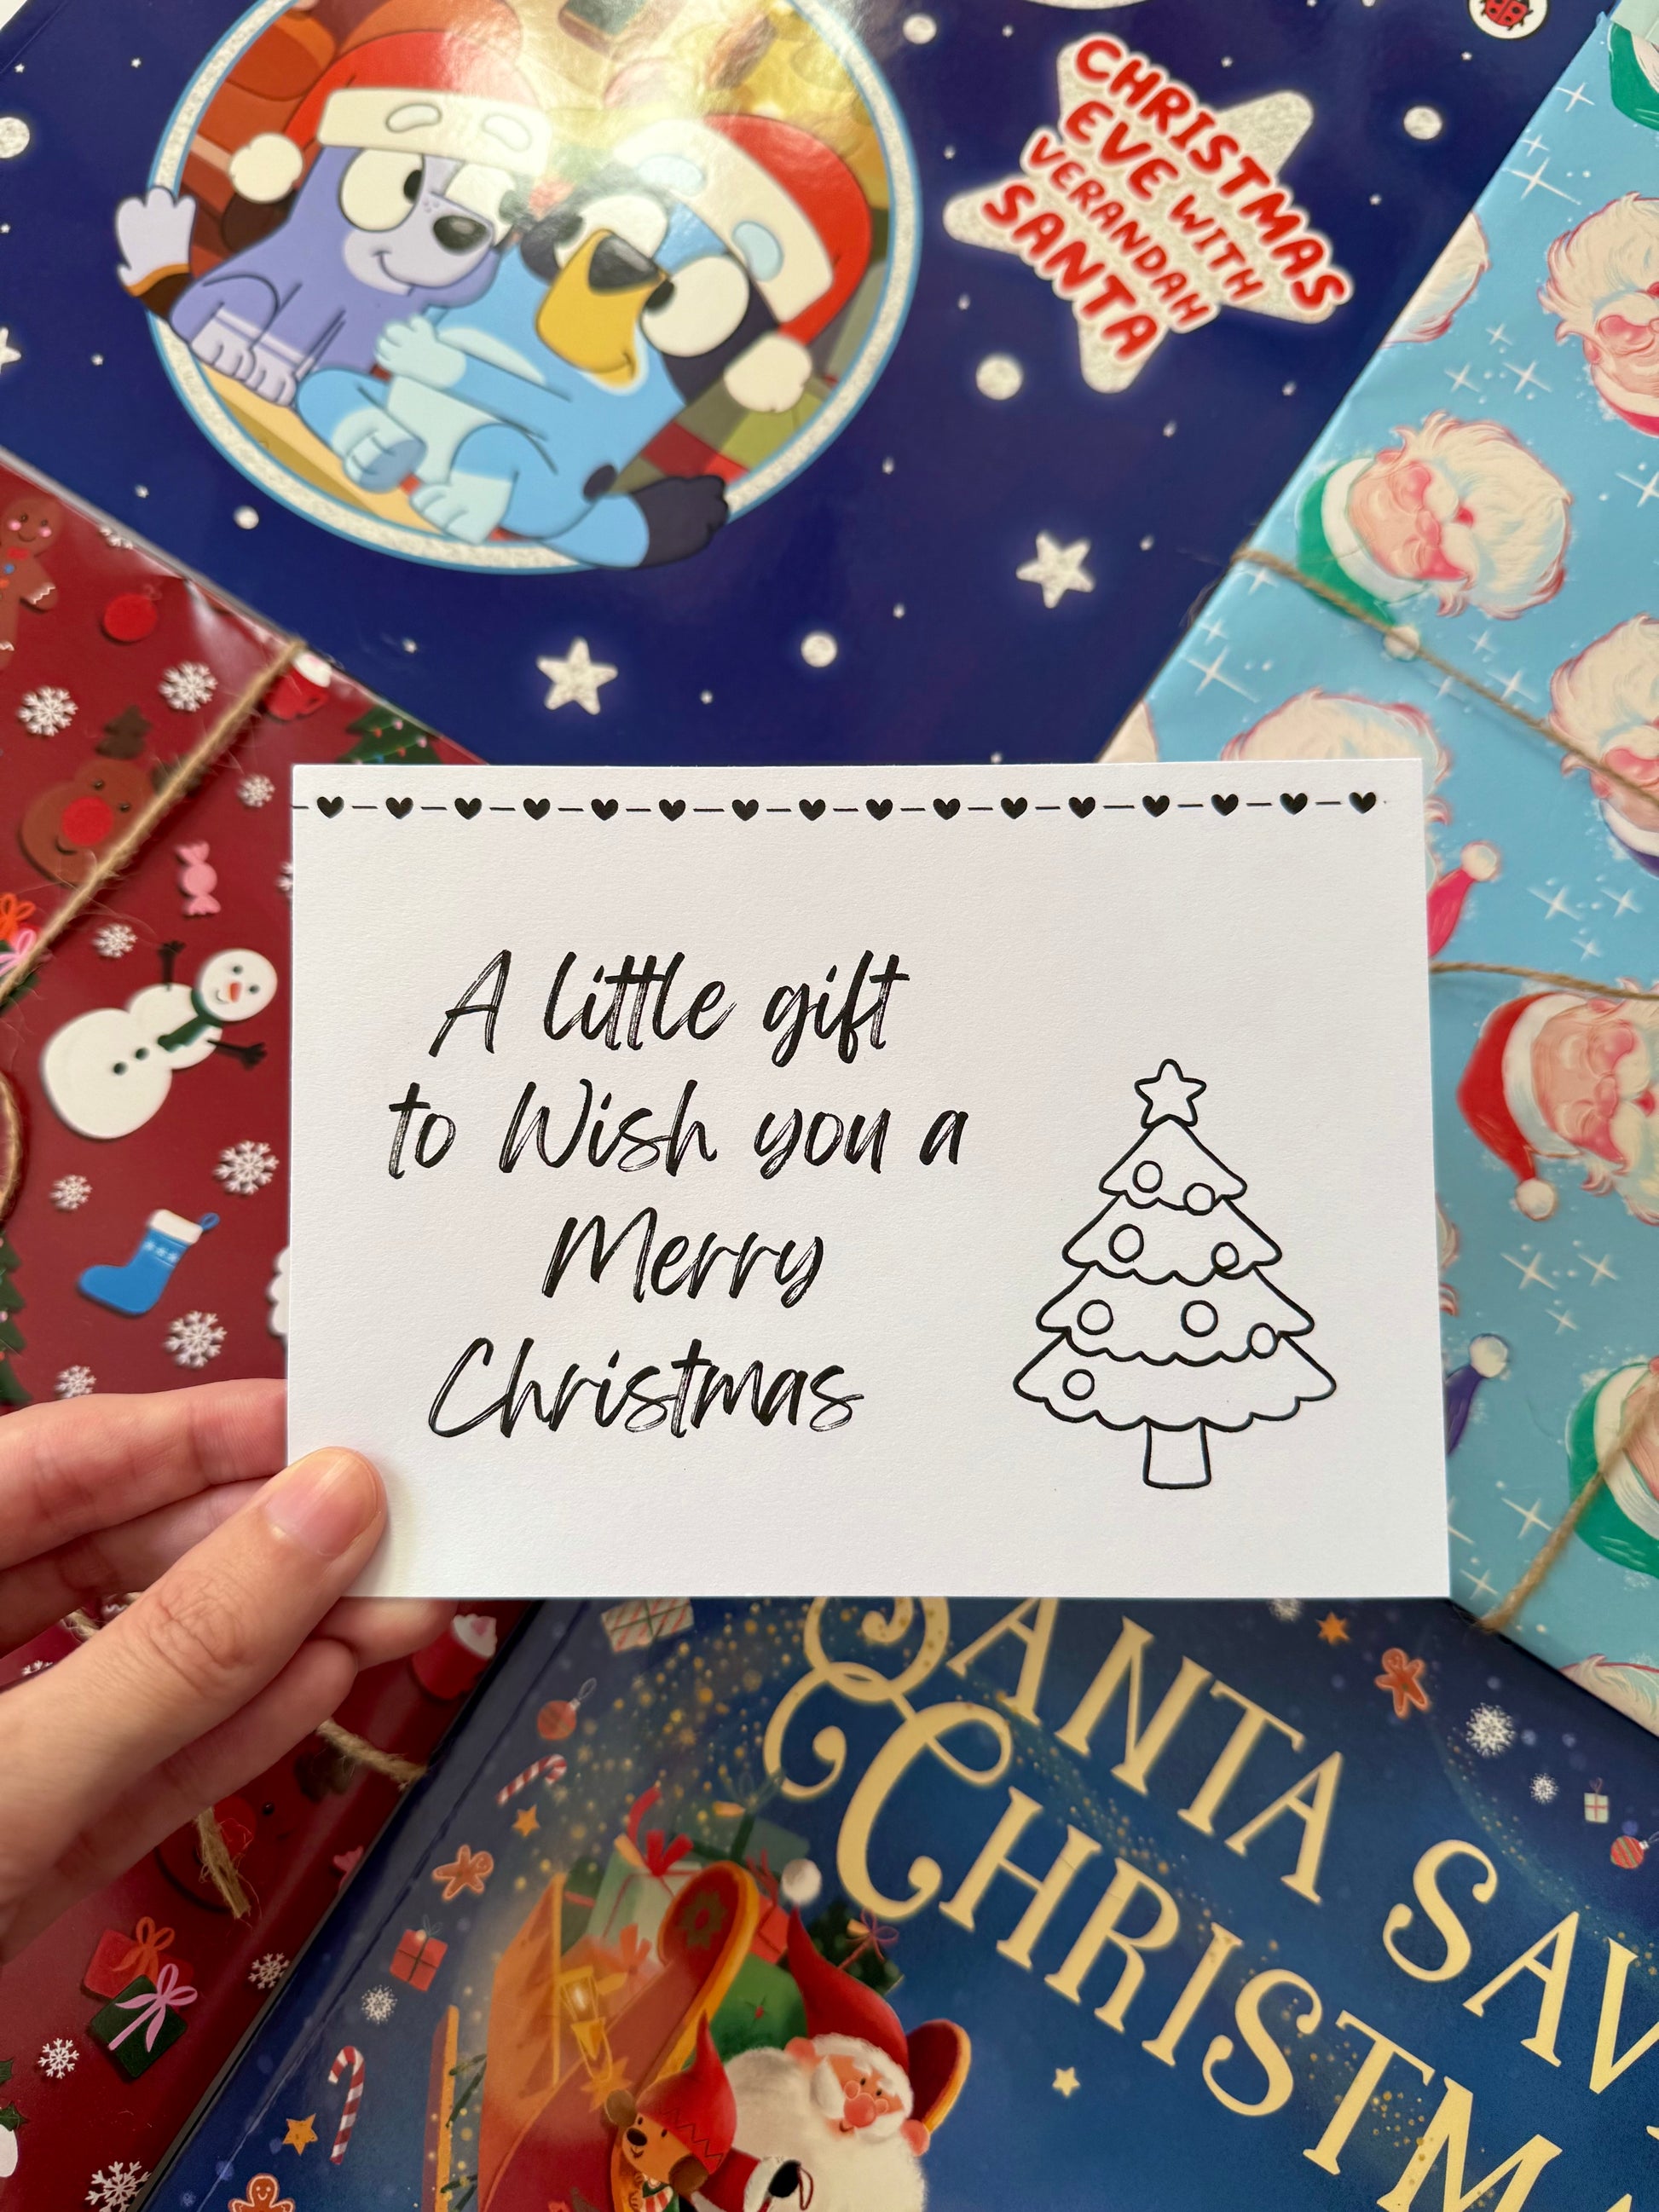 CHRISTMAS
EVE WITH
VERANDAH
SANTA
A little gift
to Wish you a
Merry
Christmas
SANTA SAV
CHRISTMA